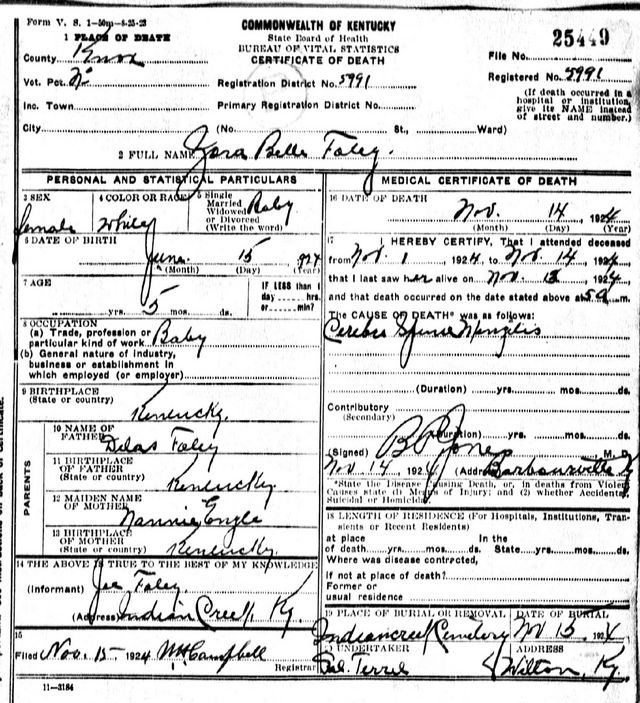 Form V. S. 1-50m-8-25-23
COMMONWEALTH OF KENTUCKY
State Board of Health
BUREAU OF VITAL STATISTICS
CERTIFICATE OF DEATH
25449
File No.
Registered No. 5991
(If death occurred in a hospital or institution, give its NAME instead of street and number.)
1 PLACE OF DEATH
County Knox
Vot. Pct.
Registration District No. 5991
Inc. Town
Primary Registration District No.
City (No. St., Ward)
2 FULL NAME Zora Belle Foley.
PERSONAL AND STATISTICAL PARTICULARS
3 SEX female
4 COLOR OR RACE White
5 Single Married Widowed or Divorced (Write the word) Baby
6 DATE OF BIRTH June 15 924
(Month) (Day) (Year)
7 AGE
yrs. 5 mos. ds.
IF LESS than 1 day hrs. or min?
8 OCCUPATION
(a) Trade, profession or particular kind of work Baby
(b) General nature of industry, business or establishment in which employed (or employer)
9 BIRTHPLACE
(State or country) Kentucky.
PARENTS
10 NAME OF FATHER Dilas Foley
11 BIRTHPLACE OF FATHER
(State or country) Kentucky
12 MAIDEN NAME OF MOTHER Nannie Engle
13 BIRTHPLACE OF MOTHER
(State or country) Kentucky.
14 THE ABOVE IS TRUE TO THE BEST OF MY KNOWLEDGE
(Informant) Joe Foley.
(Address) Indian Creek, Ky.
15
Filed Nov. 15, 1924 Campbell
Registrar
11-3184
MEDICAL CERTIFICATE OF DEATH
16 DATE OF DEATH Nov. 14 1924
(Month) (Day) (Year)
17 I HEREBY CERTIFY, That I attended deceased
from Nov. 1, 1924, to Nov. 14, 1924,
that I last saw her alive on Nov. 13, 1924,
and that death occurred on the date stated above at 5 a m.
The CAUSE OF DEATH* was as follows:
Cerebro
(Duration) yrs. mos. ds.
Contributory
(Secondary)
(Duration) yrs. mos. ds.
(Signed) Jones M. D.
Nov 14, 1924 (Address) Barbourville Ky
*State the Disease Causing Death, or, in deaths from Violent Causes state (1) Means of Injury; and (2) whether Accidental, Suicidal or Homicidal.
18 LENGTH OF RESIDENCE (For Hospitals, Institutions, Transients or Recent Residents)
at place of death yrs. mos. ds.
In the State yrs. mos. ds.
Where was disease contracted,
if not at place of death?
Former or usual residence
19 PLACE OF BURIAL OR REMOVAL Indiancreek Cemetery
DATE OF BURIAL Nov 15, 1924
20 UNDERTAKER Terrel
ADDRESS Wilton, Ky.